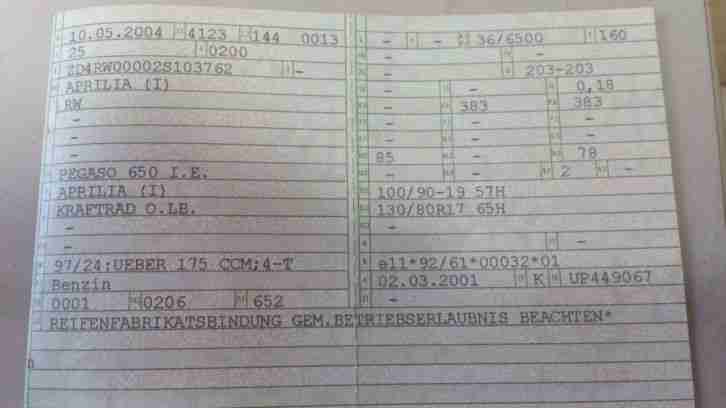 10.05.2004 4123 144 0013
25 0200
ZD4RW00002S103762 -
APRILIA (I)
RW
-
-
-
PEGASO 650 I.E.
APRILIA (I)
KRAFTRAD O.LB.
-
-
97/24:UEBER 175 CCM;4-T
Benzin
0001 0206 652
- - 36/6500 160
- -
- 203-203
- - 0,18
- 383 383
- - -
- - -
85 - 78
- - 2 -
100/90-19 57H
130/80R17 65H
-
-
e11*92/61*00032*01
02.03.2001 K UP449067
-
REIFENFABRIKATSBINDUNG GEM.BETRIEBSERLAUBNIS BEACHTEN*